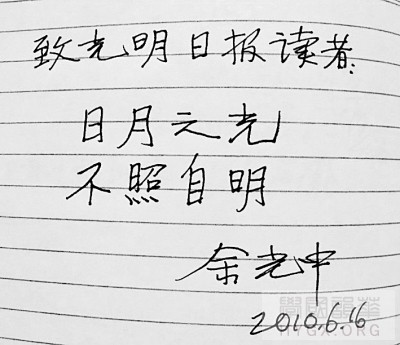 致光明日报读者：
日月之光
不照自明
余光中
2010.6.16